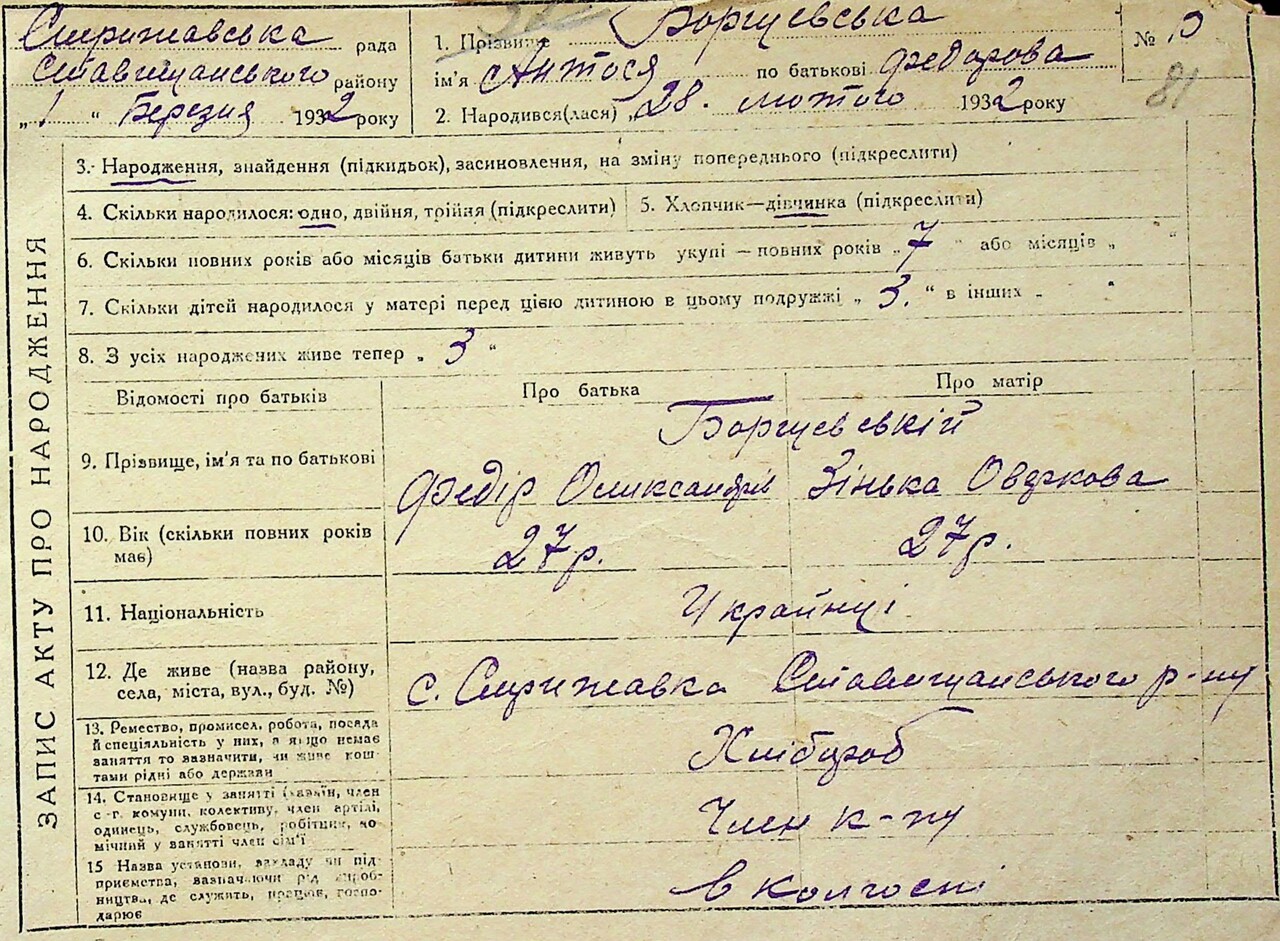 Стрижавська рада
Ставищанського району
„1 “ Березня 1932 року
1. Прізвище Боргцевська
ім'я Антося по батькові Федарова
2. Народився(лася) „28. лютого 1932 року
№
81
ЗАПИС АКТУ ПРО НАРОДЖЕННЯ
3. Народження, знайдення (підкидьок), засиновлення, на зміну попереднього (підкреслити)
4. Скільки народилося: одно, двійня, трійня (підкреслити)
5. Хлопчик—дівчинка (підкреслити)
6. Скільки повних років або місяців батьки дитини живуть укупі — повних років „ 7 “ або місяців „ “
7. Скільки дітей народилося у матері перед цією дитиною в цьому подружжі „ 3. “ в інших „ “
8. З усіх народжених живе тепер „ 3 “
Відомості про батьків
Про батька
Про матір
9. Прізвище, ім'я та по батькові
Боргцевській
Федір Олександрів
Зінька
10. Вік (скільки повних років
має)
27р.
27р.
11. Національність
Українці
12. Де живе (назва району,
села, міста, вул., буд. №)
с. Стрижавка Ставищанського р-ну
13. Ремество, промисел, робота, посада
й спеціяльність у них, а якщо немає
заняття то зазначити, чи живе кош-
тами рідні або держави
Хлібороб
14. Становище у занятті (хазяїн, член
с-г. комуни, колективу, член артілі,
одинець, службовець, робітник, по-
мічний у занятті член сім'ї
Член к-ну
15 Назва установи, закладу чи під-
приємства, зазначаючи рід вироб-
ництва, де служить, працює, госпо-
дарює
в колгоспі